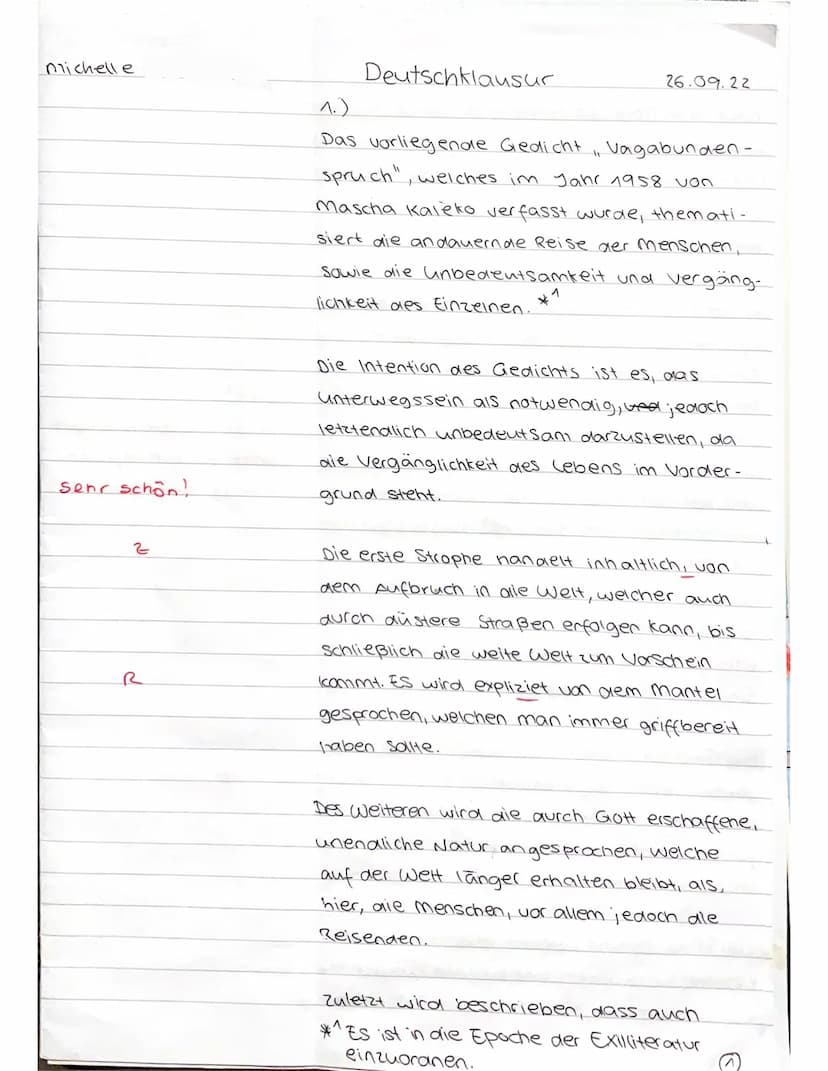 Michelle
Deutschklausur
26.09.22
1.)
Das vorliegende Gedicht „Vagabunden-
spruch", welches im Jahr 1958 von
Mascha Kaléko verfasst wurde, themati-
siert die andauernde Reise der Menschen,
sowie die Unbedeutsamkeit und Vergäng-
lichkeit des Einzelnen. *1
Die Intention des Gedichts ist es, das
Unterwegssein als notwendig, und jedoch
letztendlich unbedeutsam darzustellen, da
die Vergänglichkeit des Lebens im Vorder-
sehr schön!
grund steht.
Z
Die erste Strophe handelt inhaltlich, von
dem Aufbruch in die Welt, welcher auch
durch düstere Straßen erfolgen kann, bis
schließlich die weite Welt zum Vorschein
R
kommt. Es wird expliziet von dem Mantel
gesprochen, welchen man immer griffbereit
haben sollte.
Des Weiteren wird die durch Gott erschaffene,
unendliche Natur angesprochen, welche
auf der Welt länger erhalten bleibt, als,
hier, die Menschen, vor allem jedoch die
Reisenden.
Zuletzt wird beschrieben, dass auch
*1 Es ist in die Epoche der Exilliteratur
einzuordnen.
1